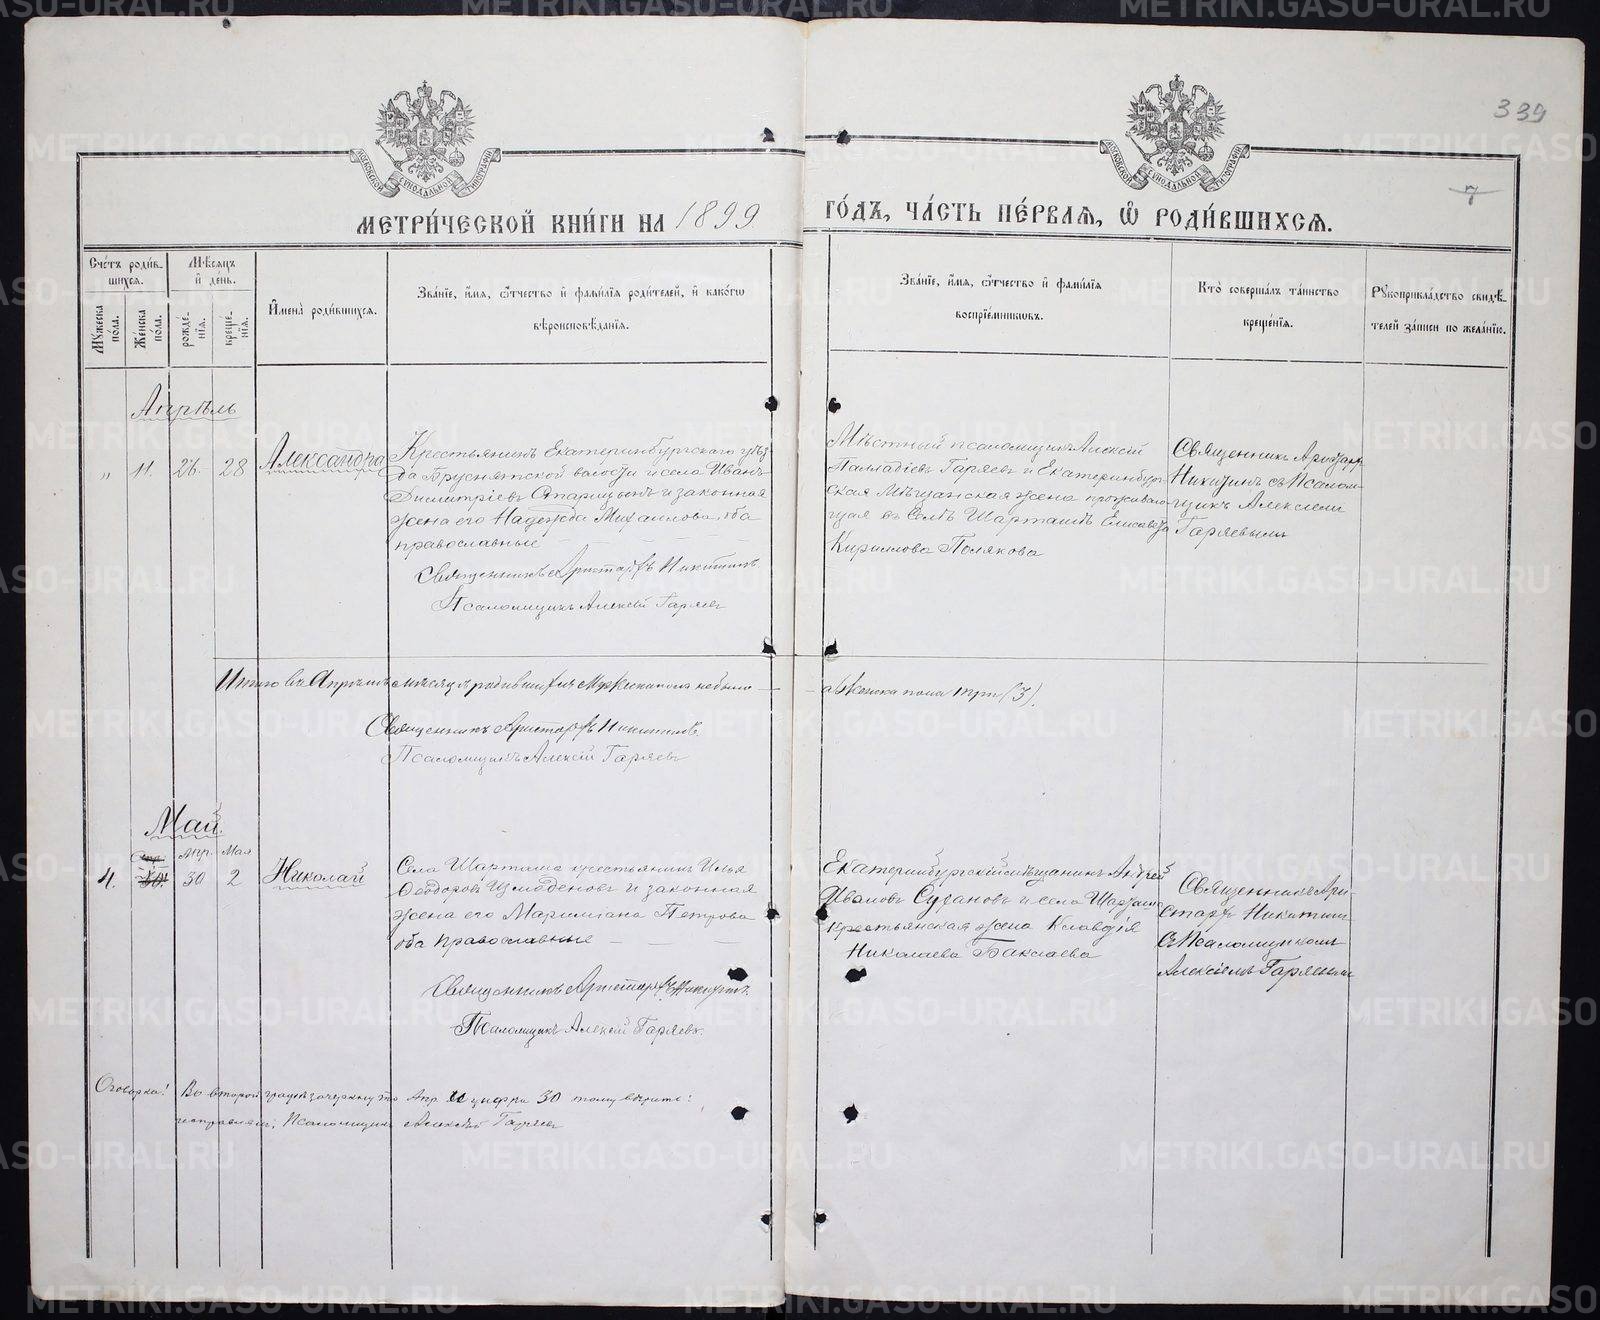 METRIKI.GASO-URAL.RU
339
7
МОСКОВСКОЙ СѴНОДАЛЬНОЙ ТИПОГРАФІИ
МОСКОВСКОЙ СѴНОДАЛЬНОЙ ТИПОГРАФІИ
МЕТРИ́ЧЕСКОЙ КНИ́ГИ НА 1899 ГО́ДЪ, ЧА́СТЬ ПЕ́РВАѦ, Ѽ РОДИ́ВШИХСѦ.
Сче́тъ роди́в-
шихсѧ.
Мꙋжеска пола.
Же́нска по́ла.
Мѣ́сѧцъ
и҆ де́нь.
рожде́-
нїѧ.
креще́-
нїѧ.
И҆мена̀ роди́вшихсѧ.
Зва́нїе, и҆́мѧ, ѻ҆́тчество и҆ фамі́лїѧ роди́телей, и҆ како́гѡ
вѣроисповѣ́данїѧ.
Зва́нїе, и҆́мѧ, ѻ҆́тчество и҆ фамі́лїѧ
воспрїе́мникѡвъ.
Кто̀ соверша́лъ та́инство
креще́нїѧ.
Рꙋкоприкла́дство свидѣ́-
телей за́писи по жела́нїю.
Апрѣль
„ 11. 26. 28 Александра
Крестьянинъ Екатеринбургскаго уѣз-
да Бруснятской волости и села Иванъ
Димитріевъ Старицынъ и законная
жена его Надежда Михаилова, оба
православные
Священникъ Аристархъ Никитинъ.
Псаломщикъ Алексій Гаряевъ
Мѣстный псаломщикъ Алексій
Палладіевъ Гаряевъ и Екатеринбург-
ская Мѣщанская жена проживаю-
щая въ Селѣ Шарташѣ Елисавета
Кириллова Полякова
Священникъ Аристархъ
Никитинъ съ Псалом-
щикъ Алексіемъ
Гаряевымъ
Итого въ Апрѣлѣ мѣсяцѣ родившихся Мужеска пола не было — а Женска пола три (3).
Священникъ Аристархъ Никитинъ.
Псаломщикъ Алексій Гаряевъ
Май.
Апр. Апр. Мая
4. 30. 30 2 Николай
Села Шарташа крестьянинъ Илья
Ѳеодоровъ Измоденовъ и законная
жена его Мариміана Петрова
оба православные
Священникъ Аристархъ Никитинъ.
Псаломщикъ Алексій Гаряевъ.
Екатеринбургскій мѣщанинъ Андрей
Ивановъ Сузановъ и села Шарташа
крестьянская жена Клавдія
Николаева Баклаева
Священникъ Ари-
стархъ Никитинъ
съ Псаломщикомъ
Алексіемъ Гаряевымъ
Оговорка! Во второй графѣ зачеркнуто Апр и цифра 30 тому вѣрить:
исправлялъ. Псаломщикъ Алексѣй Гаряевъ